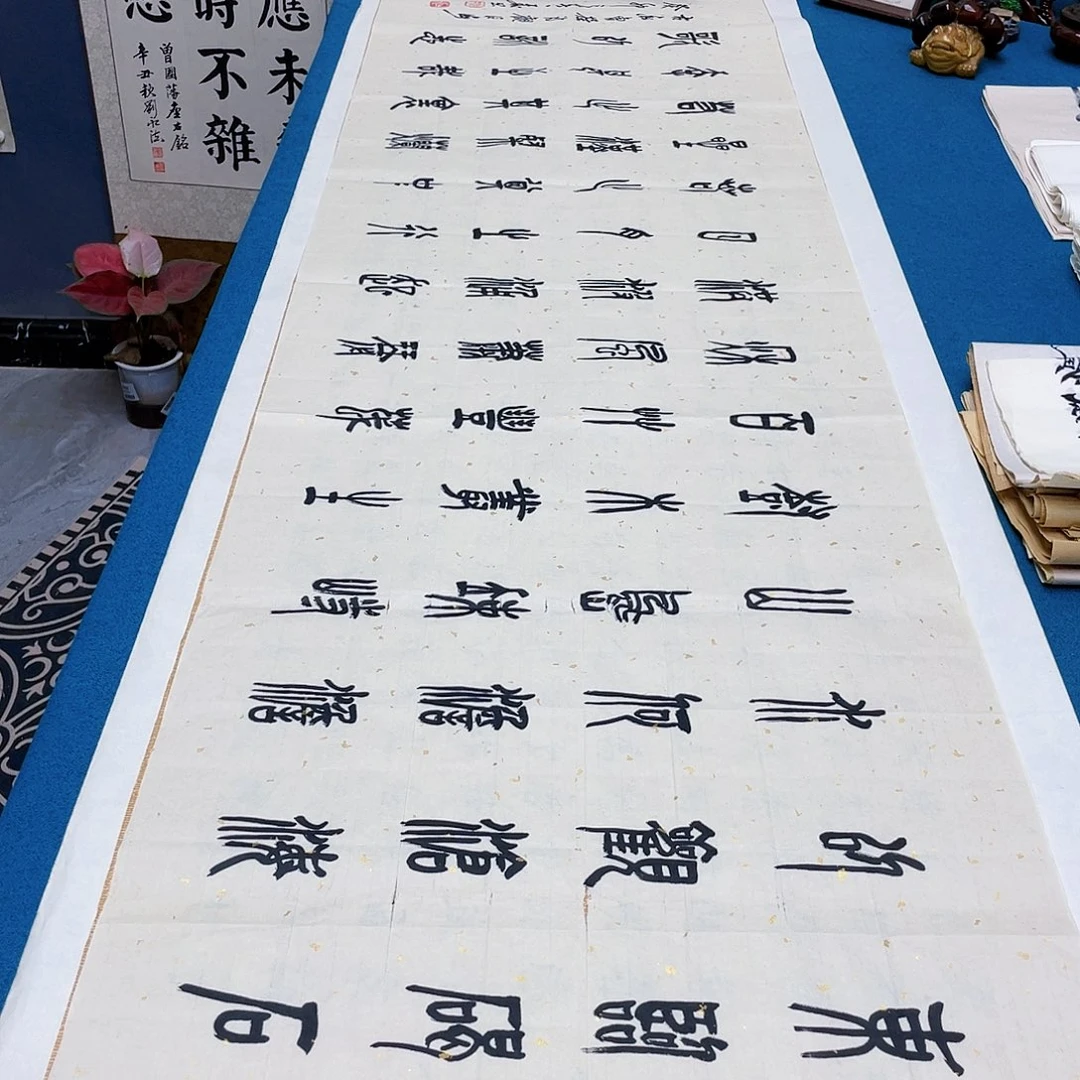 東臨碣石
以觀滄海
水何澹澹
山島竦峙
樹木叢生
百草豐茂
秋風蕭瑟
洪波湧起
日月之行
若出其中
星漢燦爛
若出其裏
幸甚至哉
歌以詠志
應未
時不雜
曾國藩座右銘
辛丑秋劉